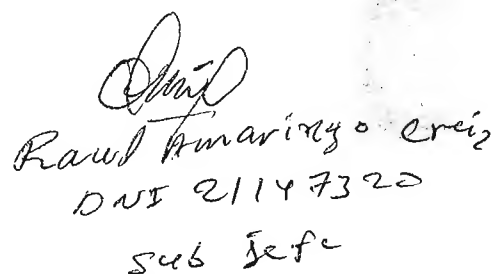 Raul Amaringo
DNI 21147320
sub jefe